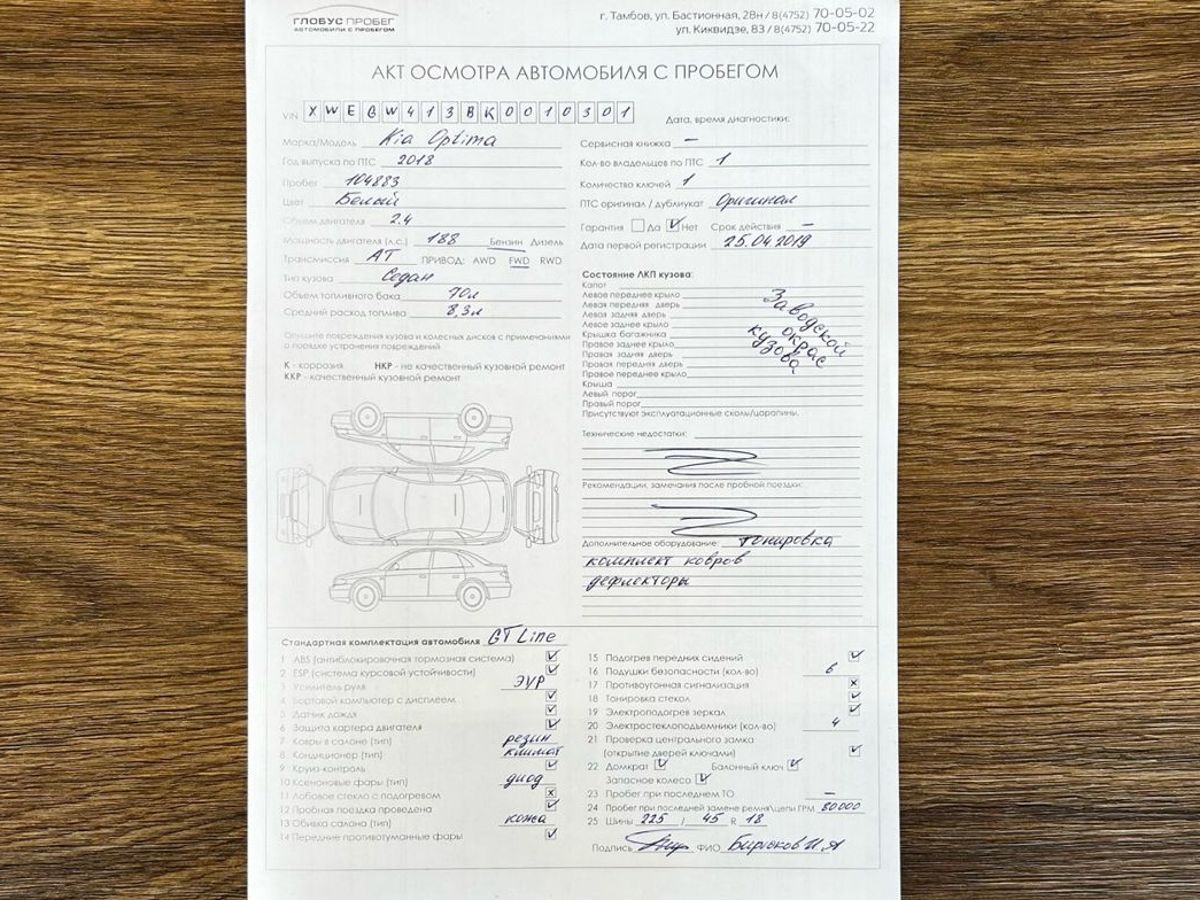 ГЛОБУС ПРОБЕГ
АВТОМОБИЛИ С ПРОБЕГОМ
г. Тамбов, ул. Бастионная, 28н / 8(4752) 70-05-02
ул. Киквидзе, 83 / 8(4752) 70-05-22
АКТ ОСМОТРА АВТОМОБИЛЯ С ПРОБЕГОМ
VIN XWEGW413BK0010301
Дата, время диагностики:
Марка/Модель Kia Optima
Год выпуска по ПТС 2018
Пробег 104883
Цвет Белый
Объем двигателя 2.4
Мощность двигателя (л.с.) 188 Бензин Дизель
Трансмиссия АТ ПРИВОД: AWD FWD RWD
Тип кузова Седан
Объем топливного бака 70л
Средний расход топлива 8,3л
Опишите повреждения кузова и колесных дисков с примечаниями
о порядке устранения повреждений
К - коррозия НКР - не качественный кузовной ремонт
ККР - качественный кузовной ремонт
Сервисная книжка —
Кол-во владельцев по ПТС 1
Количество ключей 1
ПТС оригинал / дубликат Оригинал
Гарантия Да Нет Срок действия —
Дата первой регистрации 25.04.2019
Состояние ЛКП кузова:
Капот
Левое переднее крыло
Левая передняя дверь
Левая задняя дверь
Левое заднее крыло
Крышка багажника
Правое заднее крыло
Правая задняя дверь
Правая передняя дверь
Правое переднее крыло
Крыша
Левый порог
Правый порог
Заводской
окрас
кузова
Присутствуют эксплуатационные сколы/царапины.
Технические недостатки:
Рекомендации, замечания после пробной поездки:
Дополнительное оборудование: тонировка
комплект ковров
дефлекторы
Стандартная комплектация автомобиля GT Line
1 ABS (антиблокировочная тормозная система)
2 ESP (система курсовой устойчивости)
3 Усилитель руля ЭУР
4 Бортовой компьютер с дисплеем
5 Датчик дождя
6 Защита картера двигателя
7 Ковры в салоне (тип) резин
8 Кондиционер (тип) климат
9 Круиз-контроль
10 Ксеноновые фары (тип) диод
11 Лобовое стекло с подогревом
12 Пробная поездка проведена
13 Обивка салона (тип) кожа
14 Передние противотуманные фары
15 Подогрев передних сидений
16 Подушки безопасности (кол-во) 6
17 Противоугонная сигнализация
18 Тонировка стекол
19 Электроподогрев зеркал
20 Электростеклоподъемники (кол-во) 4
21 Проверка центрального замка
(открытие дверей ключами)
22 Домкрат Балонный ключ
Запасное колесо
23 Пробег при последнем ТО —
24 Пробег при последней замене ремня\цепи ГРМ 80000
25 Шины 225 / 45 R 18
Подпись ФИО Бирюков И.А